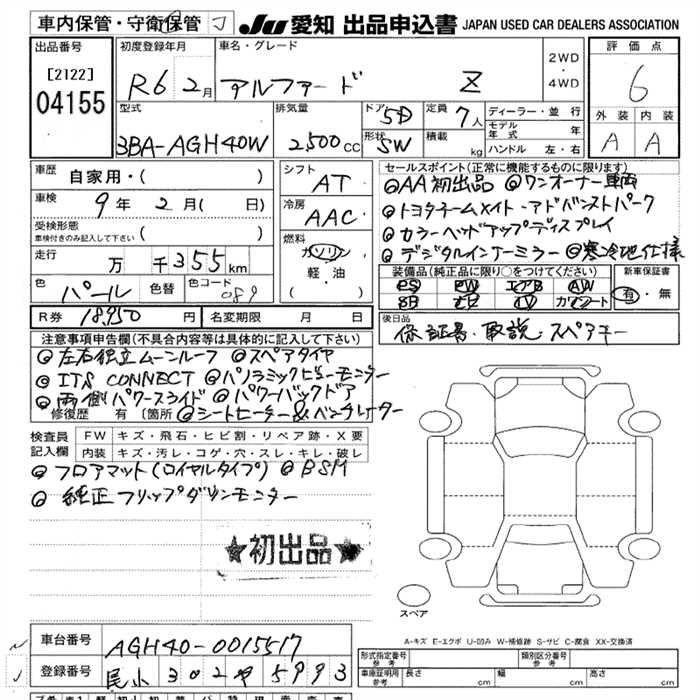 車内保管・守衛保管 J JU 愛知 出品申込書 JAPAN USED CAR DEALERS ASSOCIATION
出品番号 [2122] 04155
初度登録年月 R6年2月
車名・グレード アルファード Z
2WD・4WD
評価点 6
外装 内装
A A
型式 3BA-AGH40W
排気量 2500cc
ドア 5D
形状 SW
定員 7人
積載 kg
ディーラー・並行
モデル年式 年
ハンドル 左・右
車歴 自家用・( )
車検 9年 2月( 日)
受検形態 車検付きのみ記入して下さい ( )
走行 万 千355km
色 パール 色替 色コード 089
シフト AT
冷房 AAC
燃料 ガソリン 軽・油 ( )
セールスポイント(正常に機能するものに限ります)
◎AA初出品 ◎ワンオーナー車両
◎トヨタチームメイト・アドバンストパーク
◎カラーヘッドアップディスプレイ
◎デジタルインナーミラー ◎寒冷地仕様
装備品(純正品に限り○をつけてください) 新車保証書
PS PW エアB AW 有・無
SR ナビ TV カワシート
R券 18950円 名変期限 月 日
後日品 保証書・取説・スペアキー
注意事項申告欄(不具合内容等は具体的に記入して下さい)
◎左右独立ムーンルーフ ◎スペアタイヤ
◎ITS CONNECT ◎パノラミックビューモニター
◎両側パワースライド ◎パワーバックドア
修復歴 有 (箇所 ◎シートヒーター&ベンチレーター
検査員記入欄 FW キズ・飛石・ヒビ割・リペア跡・X要
内装 キズ・汚レ・コゲ・穴・スレ・キレ・破レ
◎フロアマット(ロイヤルタイプ) ◎BSM
◎純正フリップダウンモニター
★初出品★
スペア
A-キズ E-エクボ U-凹み W-補修跡 S-サビ C-腐食 XX-交換済
車台番号 AGH40-0015517
登録番号 尾小 302 や 5993
形式指定番号 参考 類別区分番号 参考
車庫証明用 参考 長さ cm 幅 cm 高さ cm